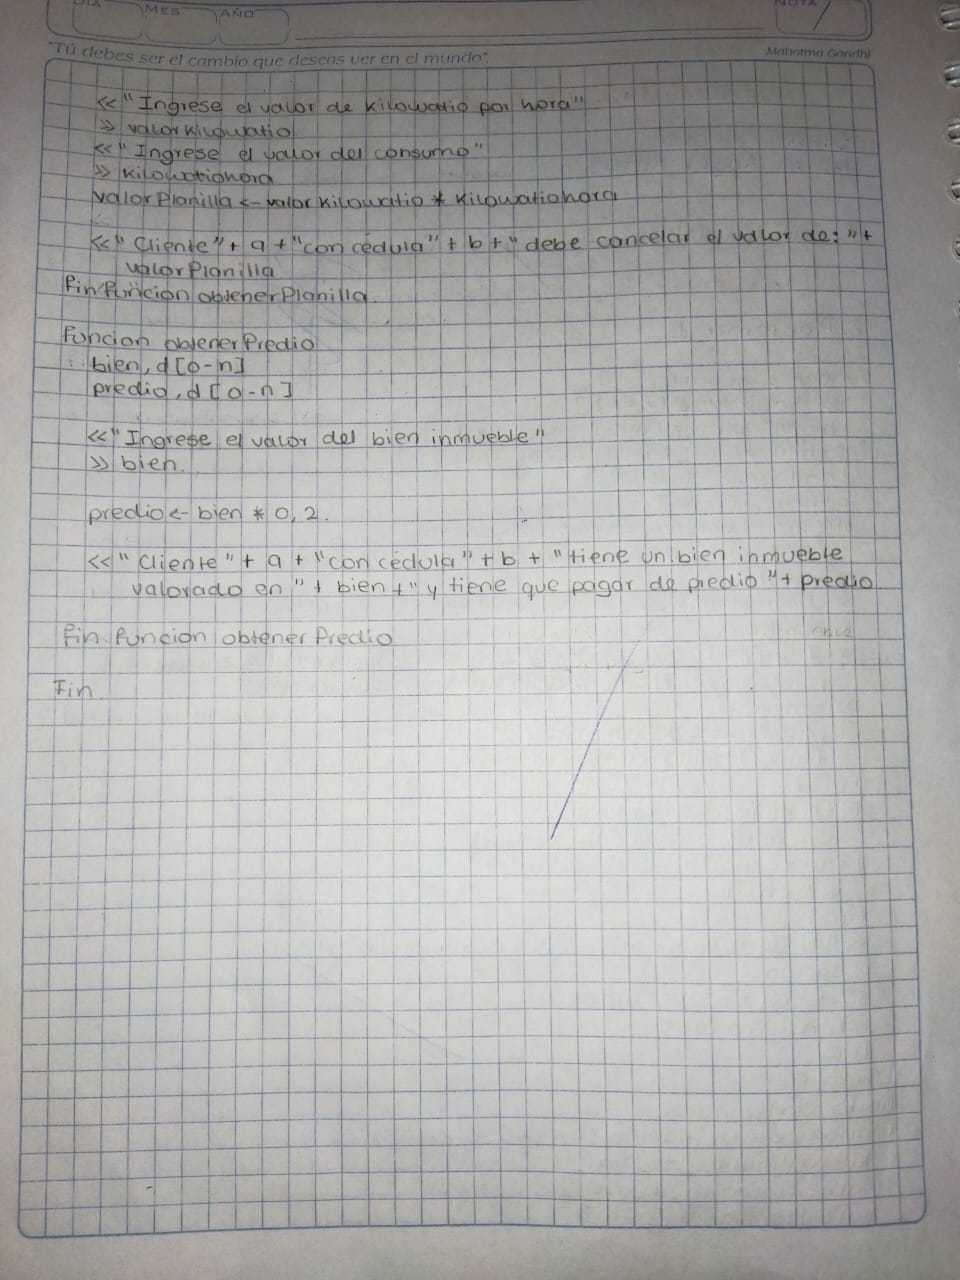 DIA MES AÑO NOTA
"Tú debes ser el cambio que deseas ver en el mundo". Mahatma Gandhi
<< "Ingrese el valor de kilowatio por hora"
>> valorkilowatio
<< "Ingrese el valor del consumo"
>> kilowatiohora
valorPlanilla <- valorkilowatio * kilowatiohora
<< "Cliente" + a + "con cédula" + b + "debe cancelar el valor de: " +
valorPlanilla
Fin funcion obtenerPlanilla.
Funcion obtenerPredio
bien, d [0-n]
predio, d [0-n]
<< "Ingrese el valor del bien inmueble"
>> bien.
predio <- bien * 0,2.
<< "Cliente" + a + "con cédula" + b + "tiene un bien inmueble
valorado en " + bien + " y tiene que pagar de predio " + predio.
Fin funcion obtenerPredio
Fin.